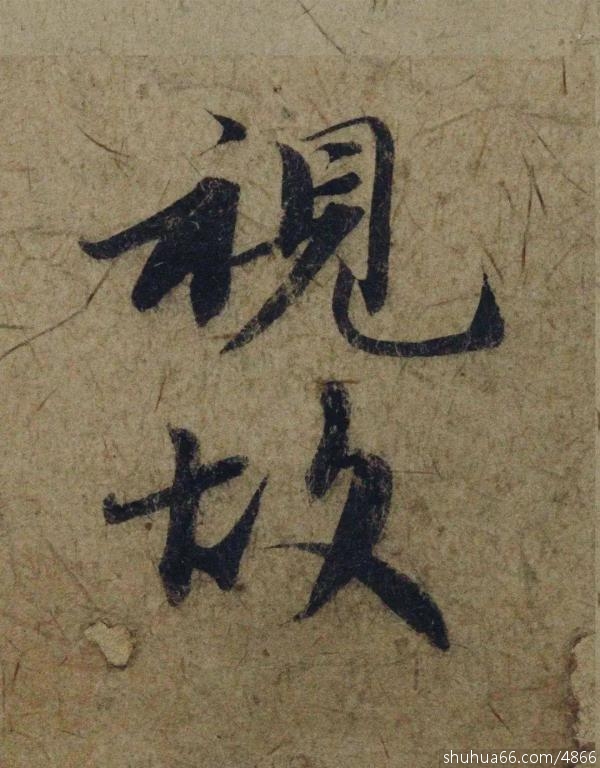 視
故
shuhua66.com/4866